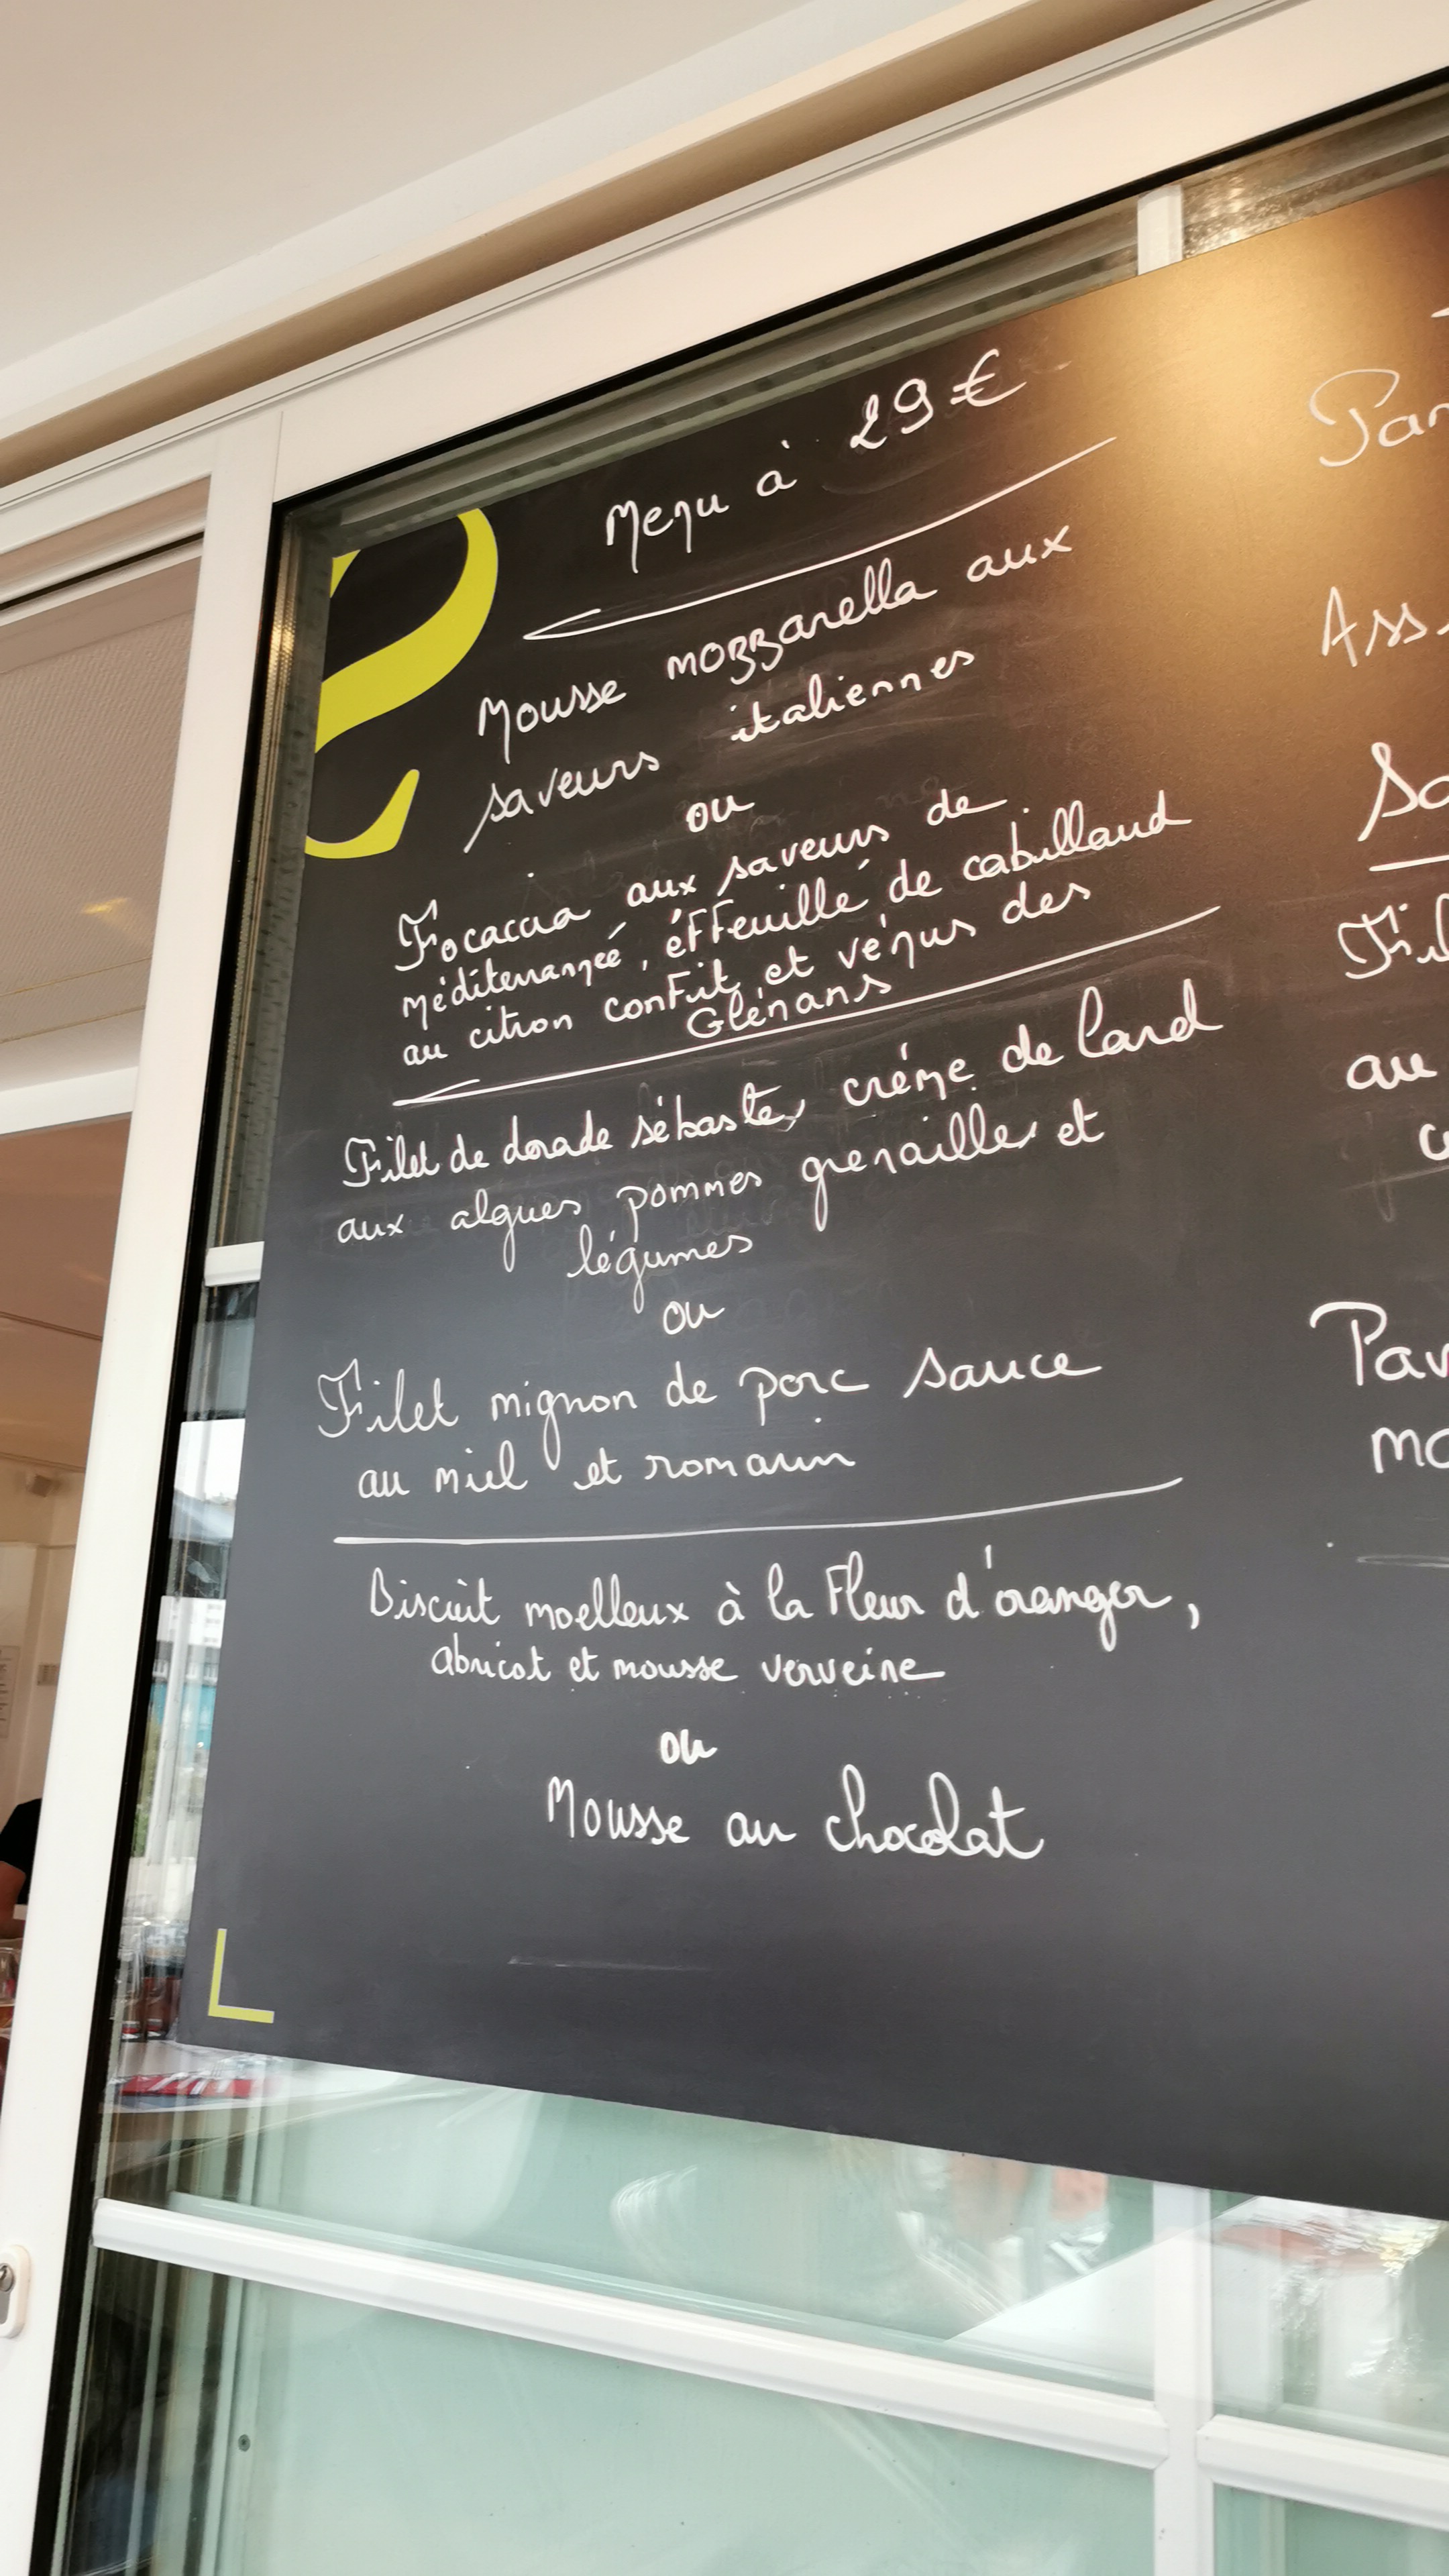 Menu à 29€
Mousse mozzarella aux
saveurs italiennes
ou
Focaccia aux saveurs de
méditerrannée, éffeuillé de cabillaud
au citron confit et vénus des
Glénans
Filet de dorade sébaste, crème de lard
aux algues pommes grenailles et
légumes
ou
Filet mignon de porc sauce
au miel et romarin
Biscuit moelleux à la fleur d'oranger,
abricot et mousse verveine
ou
Mousse au chocolat
Ass
au